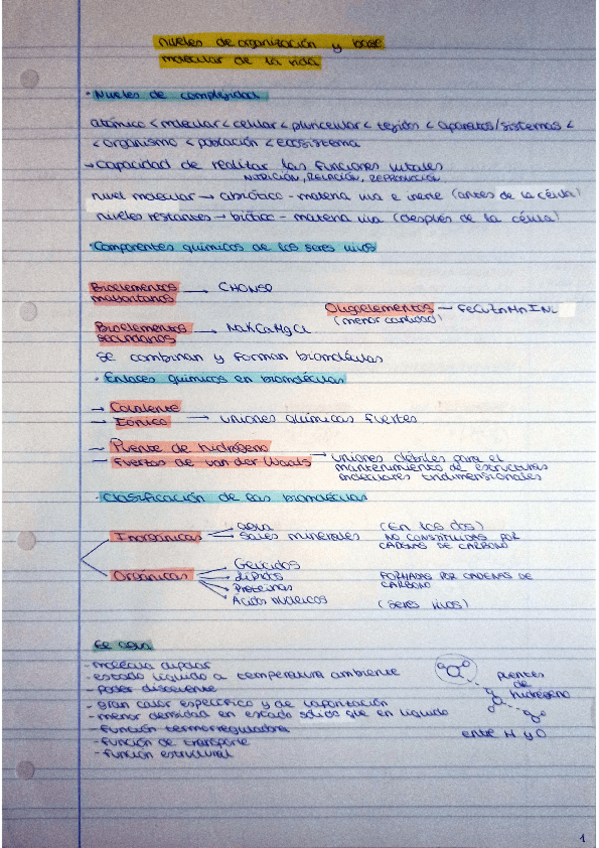 niveles de organización y base
molecular de la vida
· Niveles de complejidad
atómico < molecular < celular < pluricelular < tejidos < aparatos/sistemas <
< organismo < población < ecosistema
→ Capacidad de realizar las funciones vitales
NUTRICIÓN, RELACIÓN, REPRODUCCIÓN
nivel molecular → abiótico - materia viva e inerte (antes de la célula)
niveles restantes → biótico - materia viva (después de la célula)
· Componentes químicos de los seres vivos
Bioelementos → CHONSP
mayoritarios
Oligoelementos — FeCuZnMnINi
(menor cantidad)
Bioelementos → NaKCaMgCl
secundarios
se combinan y forman biomoléculas
· Enlaces químicos en biomoléculas
→ Covalente
→ Iónico → uniones químicas fuertes
— Puente de hidrógeno
— Fuerzas de van der Waals → uniones débiles para el
mantenimiento de estructuras
moleculares tridimensionales
· Clasificación de las biomoléculas
Inorgánicas
agua (En los dos)
sales minerales NO CONSTITUIDAS POR
CADENAS DE CARBONO
Orgánicas
Glúcidos
Lípidos FORMADAS POR CADENAS DE
CARBONO
Proteínas
Ácidos nucleicos (seres vivos)
El agua
- molécula dipolar
- estado líquido a temperatura ambiente
- poder disolvente
- gran calor específico y de vaporización
- menor densidad en estado sólido que en líquido
- función termorreguladora
- función de transporte
- función estructural
puentes
de
hidrógeno
entre H y O
1